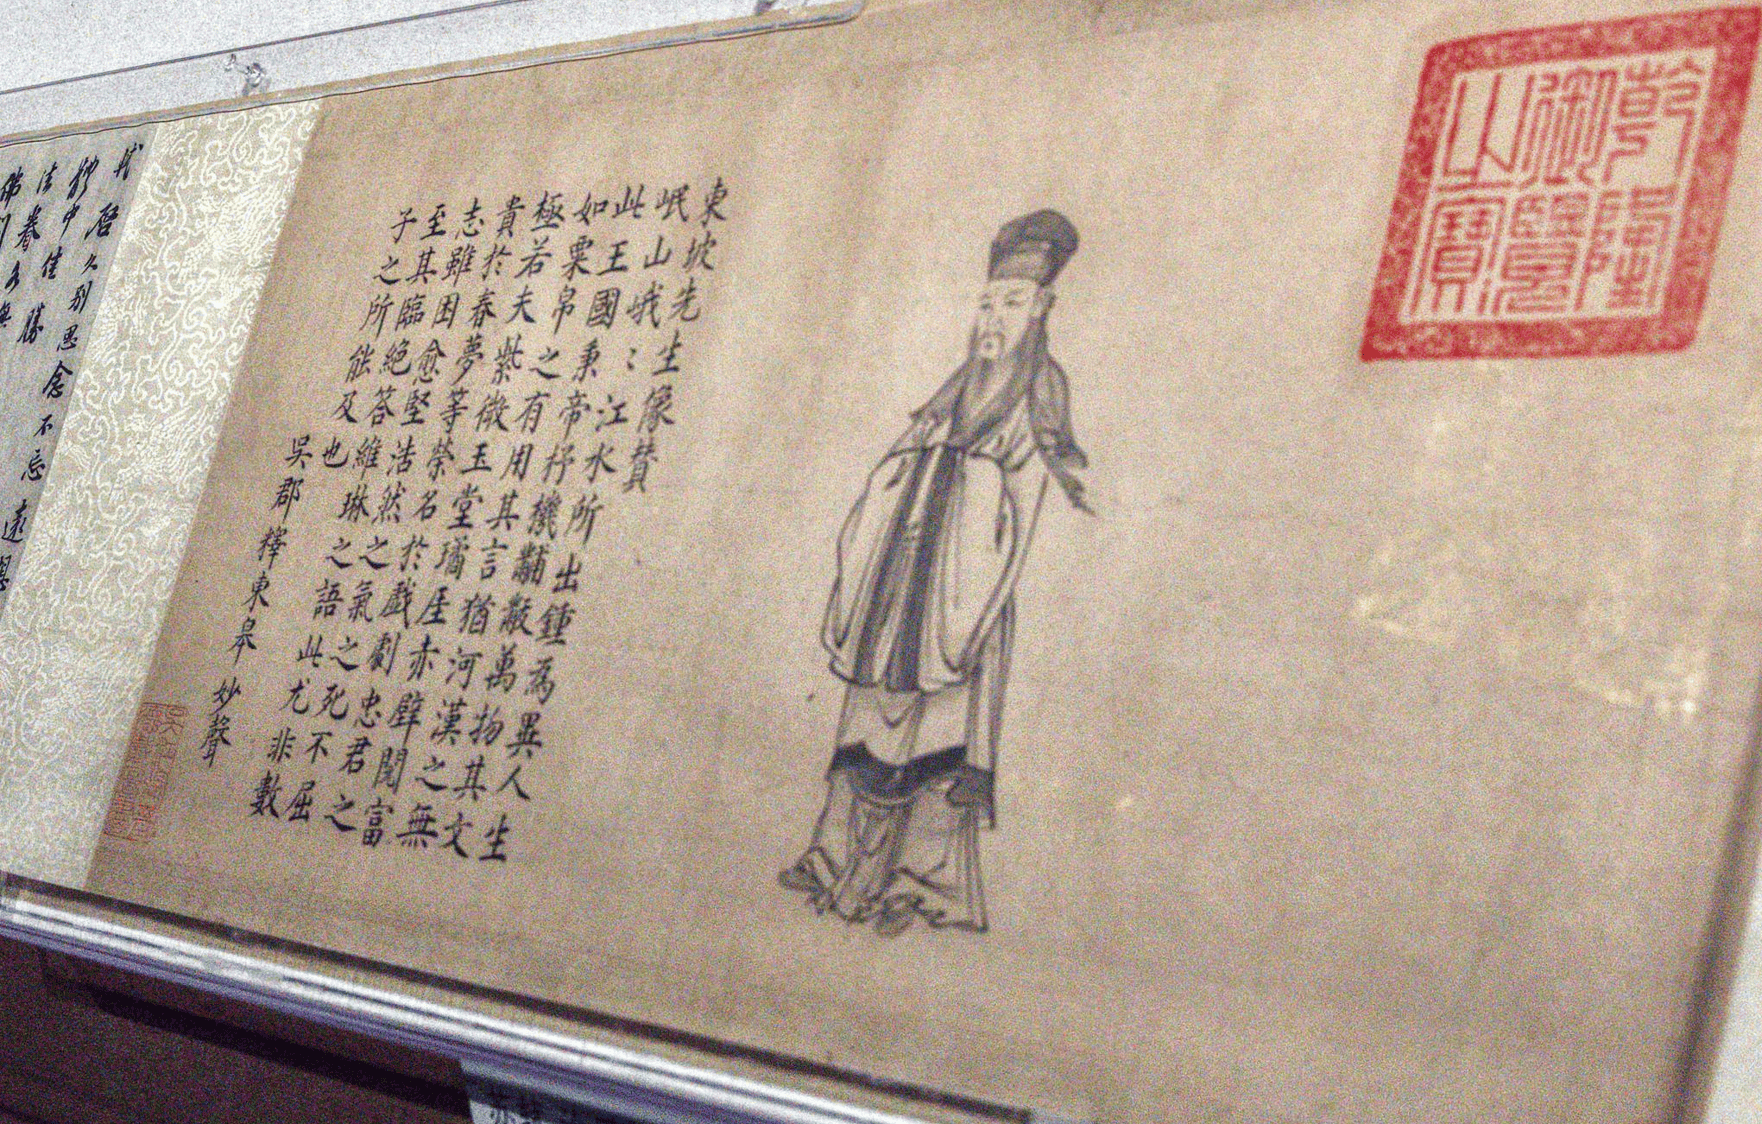 乾隆
御覽
之寶
東坡先生像贊
岷山峨〻江水所出鍾為異人生
此王國秉帝杼機黼黻萬物其文
如粟帛之有用其言猶河漢之無
極若夫紫微玉堂璚厓赤壁閱富
貴於春夢等榮名於戲劇忠君之
志雖困愈堅浩然之氣之死不屈
至其臨絕答維琳之語此尤非數
子之所能及也
吳郡釋東皋妙聲
軾啓久別思念不忘遠想
體中佳勝
法眷各無
佛印